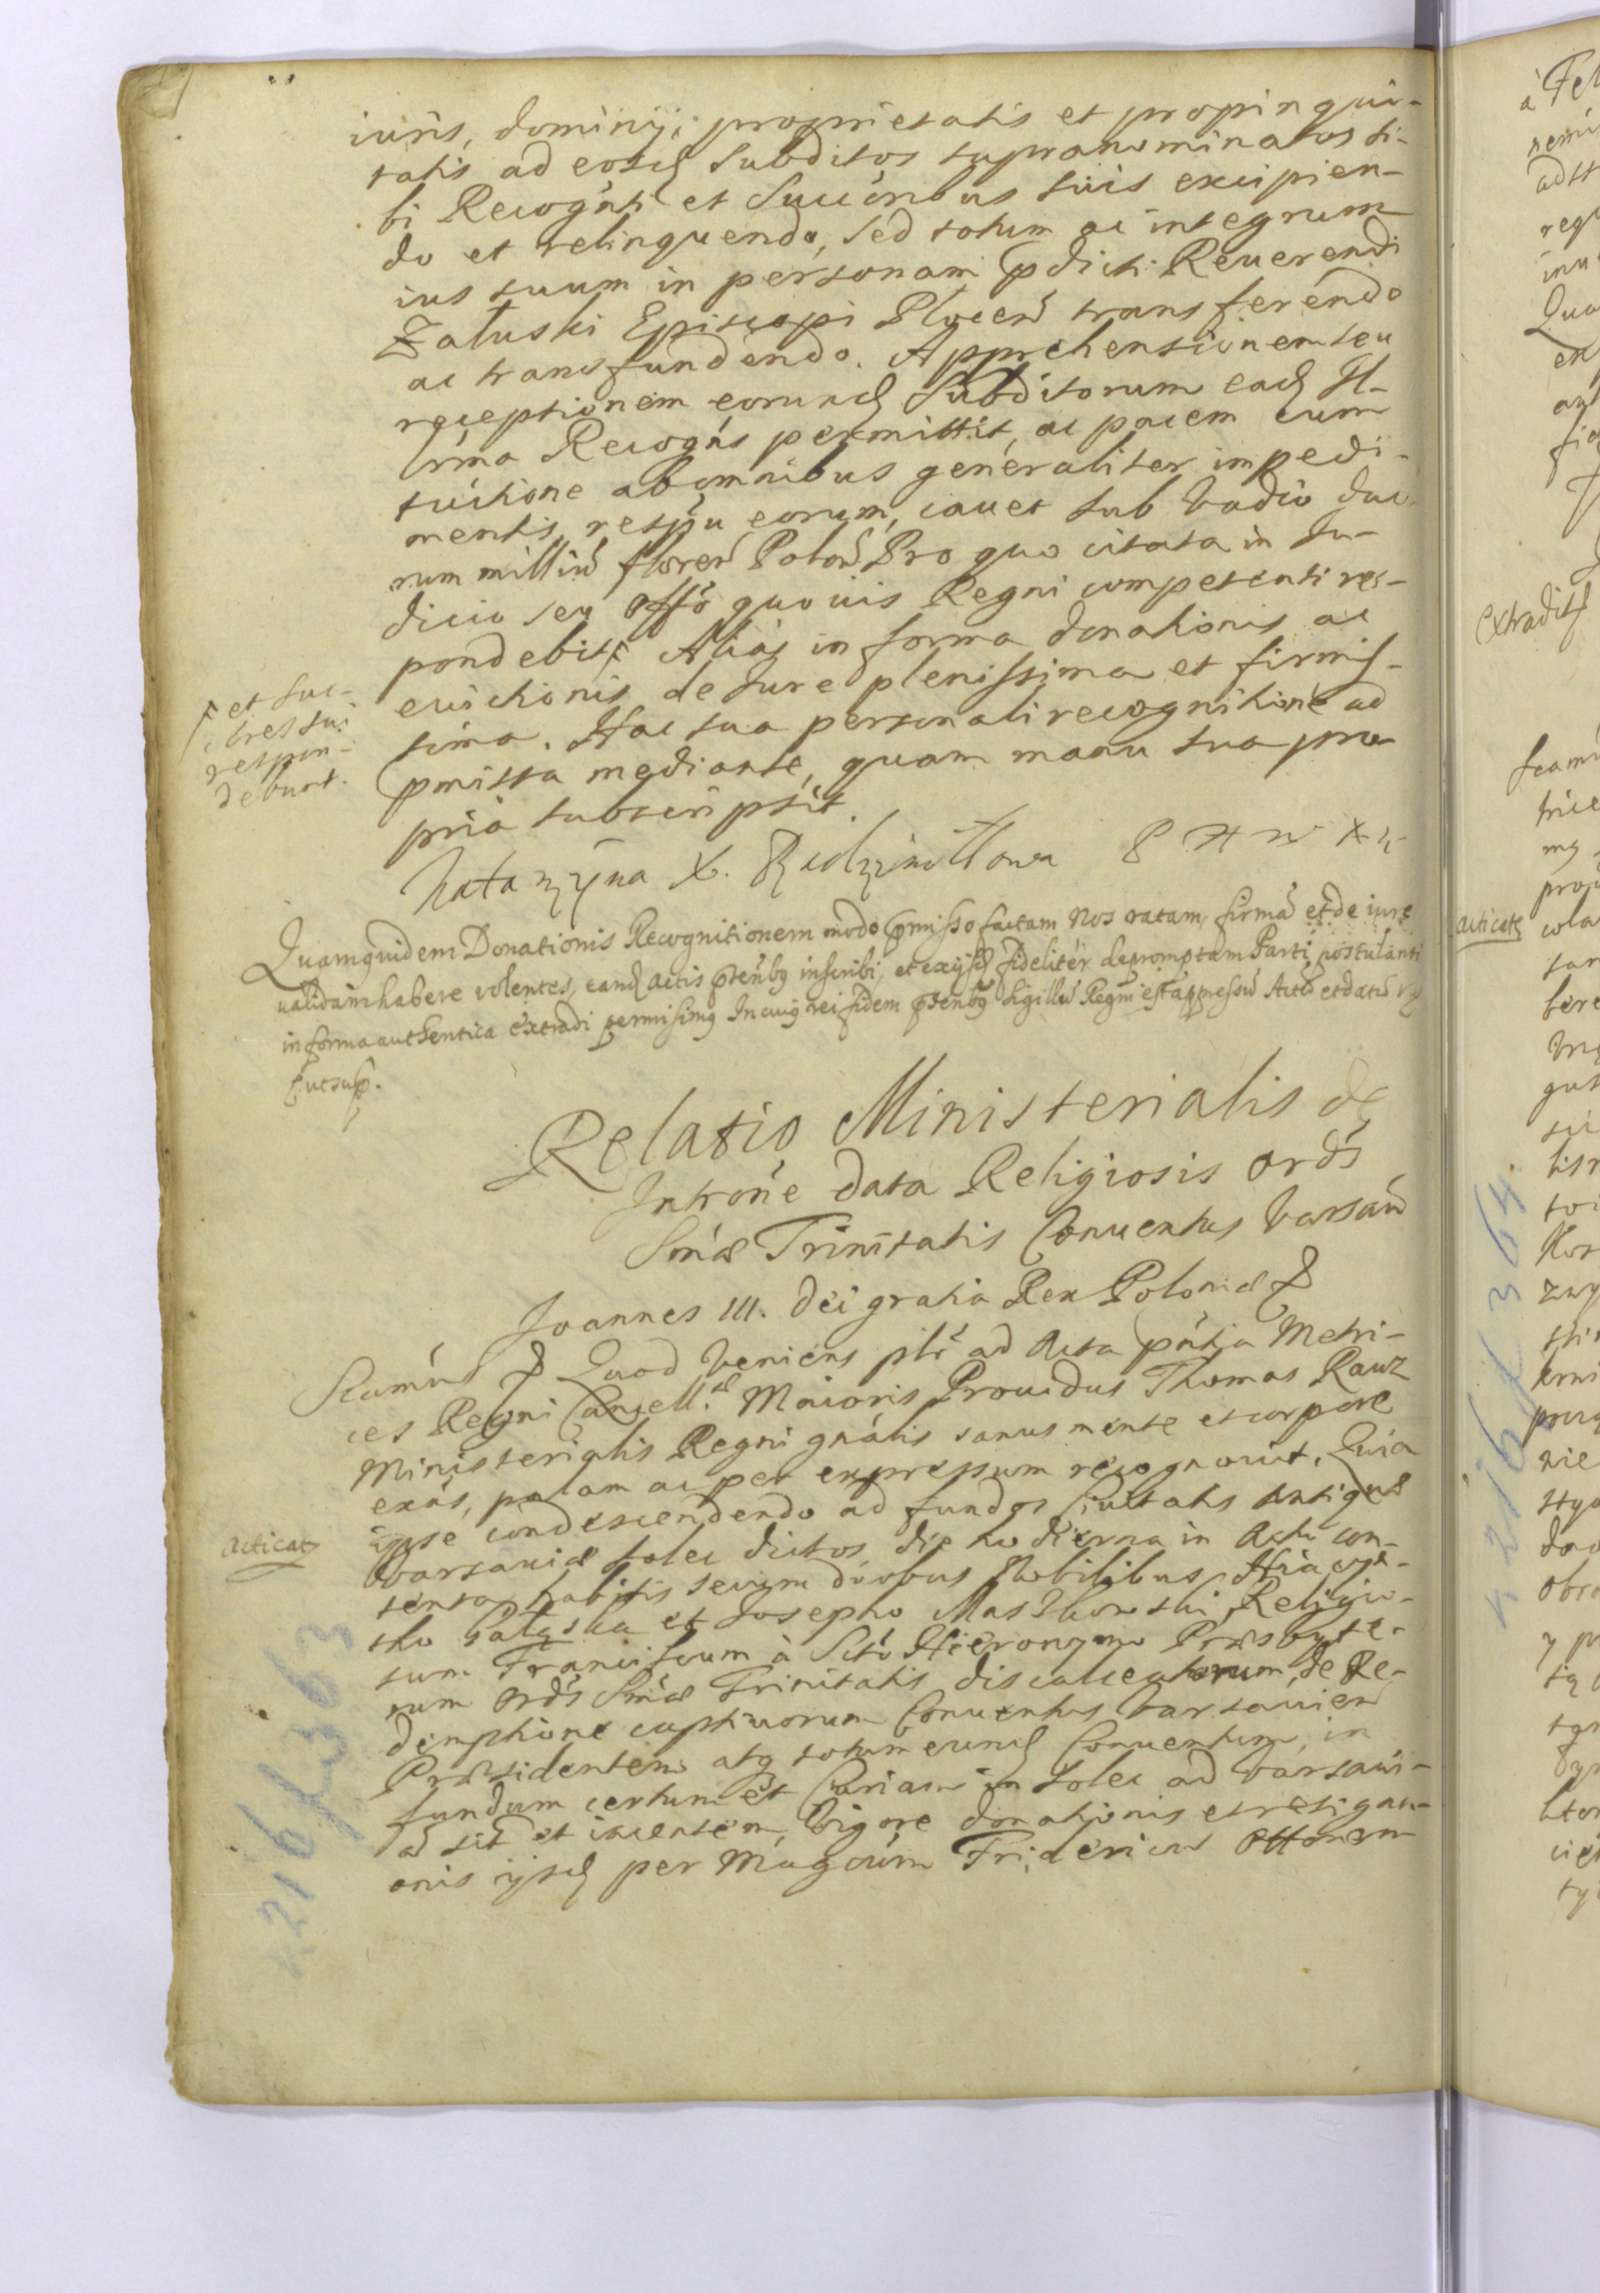 iuris, dominij, proprietatis et propinqui-
tatis ad eosd Subditos supranominatos si-
bi Recogńti et Succoribus suis excipien-
do et relinquendo, sed totum ac integrum
ius suum in personam pdicti Reuerendi
Załuski Episcopi Plocen transferendo
ac transfundendo. Apprehensionem seu
receptionem eorund Subditorum ead Il-
lrma Recogńs permittit, ac pacem cum
tuitione ab omnibus generaliter impedi-
mentis respu eorum, cauet sub Vadio duo-
rum milliu floren Polon Pro quo citata in Iu-
dicio seu offo quouis Regni competenti res-
pondebit Alias in forma donationis ac
euictionis de Iure plenissima et firmis-
sima. Hac sua personali recognitione ad
pmissa mediante, quam manu sua pro-
pria subscripsit.
et suc-
cores sui
respon-
debunt.
Katarzyna X. Radziwiłłowa P H W X L
Quamquidem Donationis Recognitionem modo pmisso factam Nos ratam, firma et de iure
validam habere volentes, eand Actis pntibq inscribi, et ex ijsd fideliter depromptam Parti postulanti
in forma authentica extradi permisimq In cuiq rei fidem pntibq Sigillu Regni est appressu Actu et datu
ut sup.
Relatio Ministerialis de
Introne data Religiosis ords
Smæ Trinitatis Conuentus Varsau
Joannes III. Dei gratia Rex Poloniæ
Seamus Quod Veniens pltr ad Acta pntia Metri-
ces Regni Cancell. Maioris Prouidus Thomas Rauz
Ministerialis Regni gnalis sanus mente et corpore
exns, palam ac per expressum recognouit, Quia
ipse condescendendo ad fundos Ciuitatis Antiquæ
Varsauiæ Solec dictos die hodierna in Actu con-
tenta habitis secum duobus Nobilibus Hiacyn-
tho et Josepho Religio-
sum Franciscum à Scto Hieronymo Præsbyte-
rum ords Smæ Trinitatis discalceatorum, de Re-
demptione captiuorum Conuentus Varsauien
Præsidentem atq totum eund Conuentum, in
fundum certum et Curiam in Solec ad Varsaui-
a sit et iacentem, Vigore donationis et resignati-
onis ijsd per Magcum Fridericu Ottonem
Acticat
216 f 363
Acticat
Extradit
216 f 364